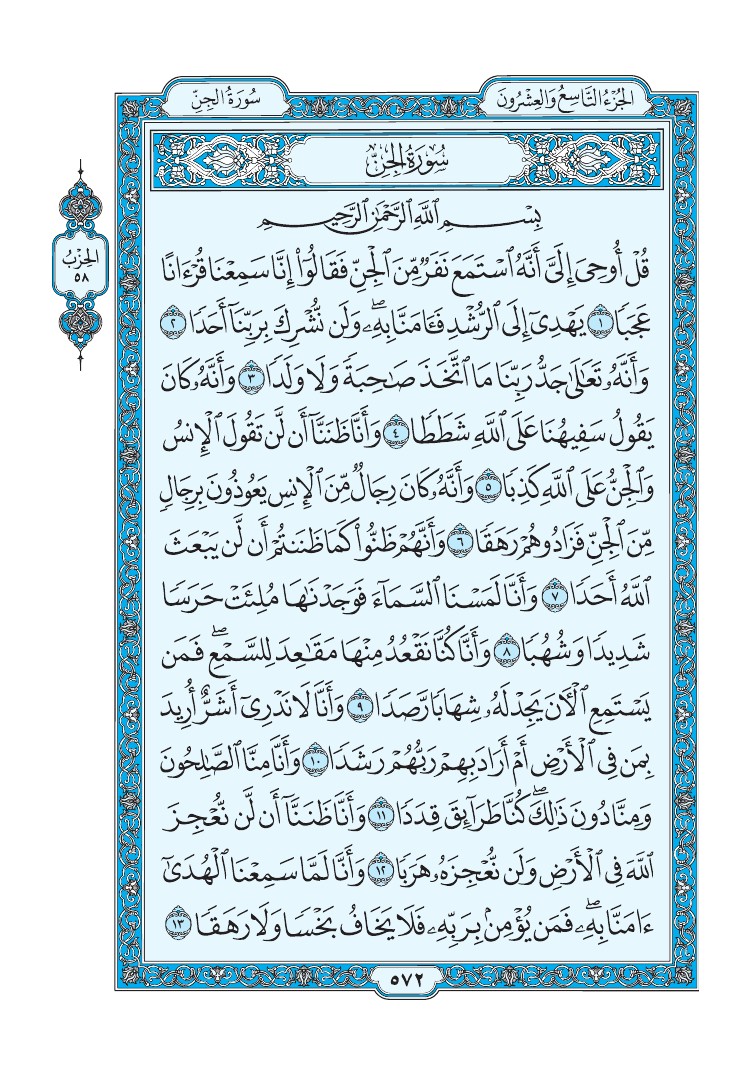 الجُزْءُ التَّاسِعُ وَالعِشْرُونَ
سُورَةُ الجِنِّ
سُورَةُ الجِنِّ
الحِزْبُ
٥٨
بِسْمِ ٱللَّهِ ٱلرَّحْمَٰنِ ٱلرَّحِيمِ
قُلْ أُوحِىَ إِلَىَّ أَنَّهُ ٱسْتَمَعَ نَفَرٌ مِّنَ ٱلْجِنِّ فَقَالُوٓا۟ إِنَّا سَمِعْنَا قُرْءَانًا
عَجَبًا ١ يَهْدِىٓ إِلَى ٱلرُّشْدِ فَـَٔامَنَّا بِهِۦ ۖ وَلَن نُّشْرِكَ بِرَبِّنَآ أَحَدًا ٢
وَأَنَّهُۥ تَعَٰلَىٰ جَدُّ رَبِّنَا مَا ٱتَّخَذَ صَٰحِبَةً وَلَا وَلَدًا ٣ وَأَنَّهُۥ كَانَ
يَقُولُ سَفِيهُنَا عَلَى ٱللَّهِ شَطَطًا ٤ وَأَنَّا ظَنَنَّآ أَن لَّن تَقُولَ ٱلْإِنسُ
وَٱلْجِنُّ عَلَى ٱللَّهِ كَذِبًا ٥ وَأَنَّهُۥ كَانَ رِجَالٌ مِّنَ ٱلْإِنسِ يَعُوذُونَ بِرِجَالٍ
مِّنَ ٱلْجِنِّ فَزَادُوهُمْ رَهَقًا ٦ وَأَنَّهُمْ ظَنُّوا۟ كَمَا ظَنَنتُمْ أَن لَّن يَبْعَثَ
ٱللَّهُ أَحَدًا ٧ وَأَنَّا لَمَسْنَا ٱلسَّمَآءَ فَوَجَدْنَٰهَا مُلِئَتْ حَرَسًا
شَدِيدًا وَشُهُبًا ٨ وَأَنَّا كُنَّا نَقْعُدُ مِنْهَا مَقَٰعِدَ لِلسَّمْعِ ۖ فَمَن
يَسْتَمِعِ ٱلْـَٔانَ يَجِدْ لَهُۥ شِهَابًا رَّصَدًا ٩ وَأَنَّا لَا نَدْرِىٓ أَشَرٌّ أُرِيدَ
بِمَن فِى ٱلْأَرْضِ أَمْ أَرَادَ بِهِمْ رَبُّهُمْ رَشَدًا ١٠ وَأَنَّا مِنَّا ٱلصَّٰلِحُونَ
وَمِنَّا دُونَ ذَٰلِكَ ۖ كُنَّا طَرَآئِقَ قِدَدًا ١١ وَأَنَّا ظَنَنَّآ أَن لَّن نُّعْجِزَ
ٱللَّهَ فِى ٱلْأَرْضِ وَلَن نُّعْجِزَهُۥ هَرَبًا ١٢ وَأَنَّا لَمَّا سَمِعْنَا ٱلْهُدَىٰٓ
ءَامَنَّا بِهِۦ ۖ فَمَن يُؤْمِنۢ بِرَبِّهِۦ فَلَا يَخَافُ بَخْسًا وَلَا رَهَقًا ١٣
٥٧٢